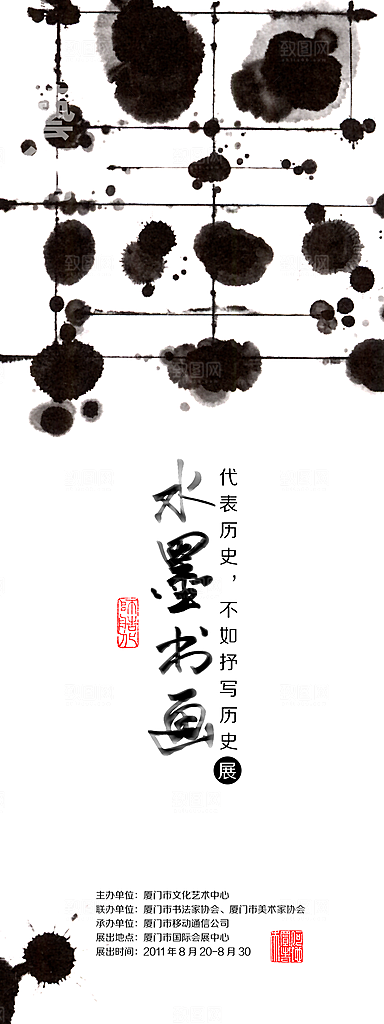 代表历史，不如抒写历史
展
水墨书画
主办单位：厦门市文化艺术中心
联办单位：厦门市书法家协会、厦门市美术家协会
承办单位：厦门市移动通信公司
展出地点：厦门市国际会展中心
展出时间：2011年8月20-8月30
致图网